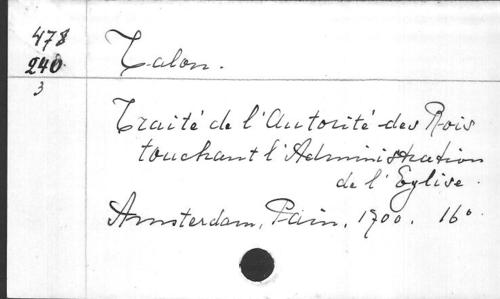 478
240.
3
Talon.
Traité de l'Autorité des Rois
touchant l'Administration
de l'Eglise.
Amsterdam, Pain, 1700. 16°